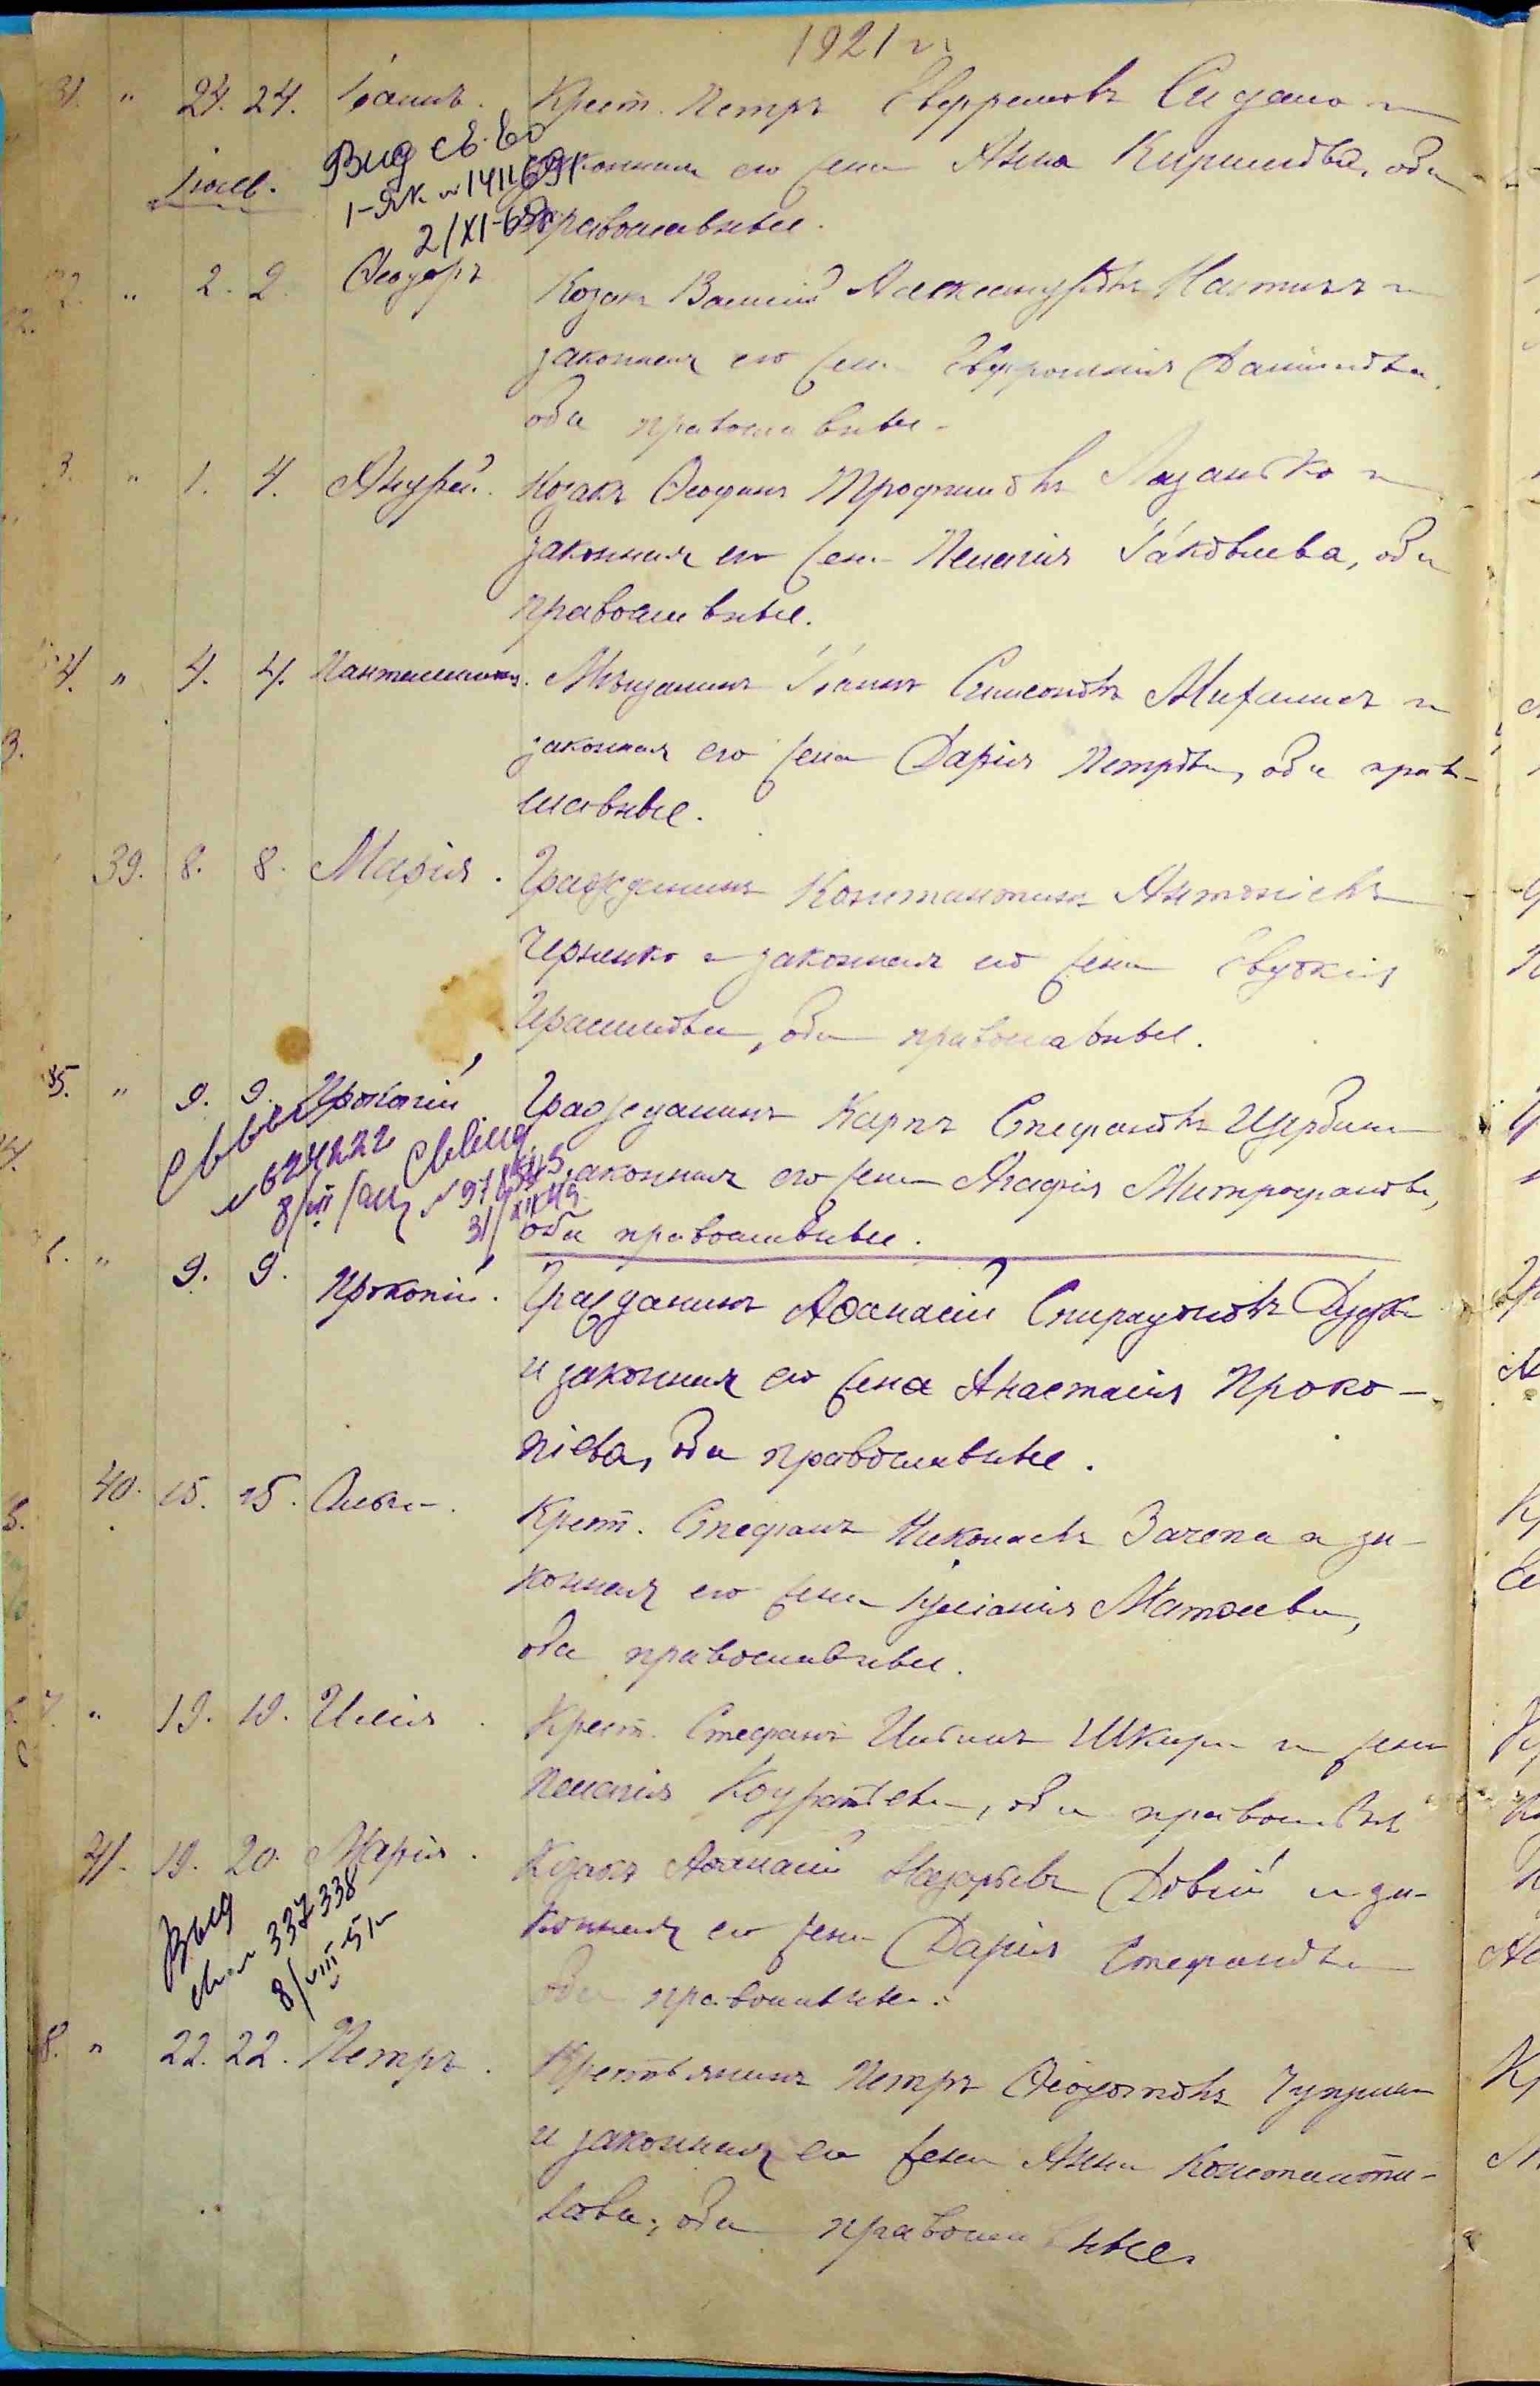 1921 г.
31. " 24. 24. Іоаннъ. Крест. Петръ Евфремовъ Сидако и
законная его жена Анна Кириллова, оба
православные.
Вид св-во
1-ЯК № 1411691
2/XI-
Іюль.
2. " 2. 2. Ѳеодоръ Козакъ Василій Александровъ и
законная его жена Евфросинія Даніилова,
оба православные.
3. " 1. 4. Андрей. Козакъ Ѳеофанъ Трофимовъ и
законная его жена Пелагія Іаковлева, оба
православные.
4. " 4. 4. Пантелеимонъ. Мѣщанинъ Іоаннъ Симеоновъ и
законная его жена Дарія Петрова, оба право-
славные.
39. 8. 8. Марія. Гражданинъ Константинъ Антоніевъ
Черненко и законная его жена Евдокія
Герасимова, оба православные.
35. " 9. 9. Прокопій Гражданинъ Карпъ Стефановъ Щербина
законная его жена Агафія Митрофанова,
оба православные.
№ 624222
8/VII
31/XII 49
" 9. 9. Прокопій. Гражданинъ Аѳанасій Спиридоновъ Дудка
и законная его жена Анастасія Проко-
піева, оба православные.
40. 15. 15. Ольга. Крест. Стефанъ Николаевъ Зачепа и за-
конная его жена Іуліанія Матѳеева,
оба православные.
7. " 19. 19. Илія. Крест. Стефанъ Шкира и жена
Пелагія Кондратіева, оба православные
41. 19. 20. Марія. Козакъ Аѳанасій Назарьевъ Довгій и за-
конная его жена Дарія Стефанова
оба православные.
Выд
св-во 337338
8/VIII-51г
8. " 22. 22. Петръ. Крестьянинъ Петръ Ѳеодотовъ Чуприна
и законная его жена Анна Константи-
нова, оба православные